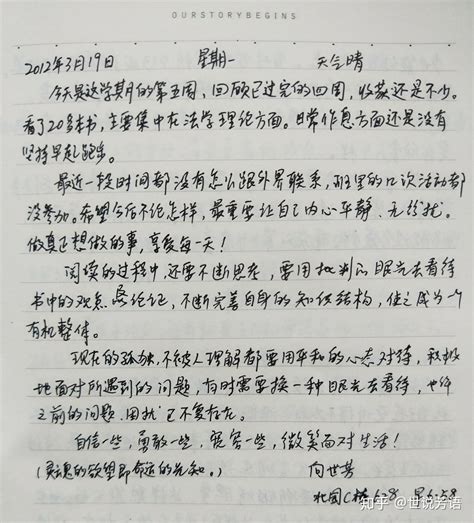 OURSTORYBEGINS
2012年3月19日 星期一 天气晴
今天是这学期的第五周，回顾已过完的四周，收获还是不少。
看了20多本书，主要集中在法学理论方面。日常作息方面还是没有
坚持早起跑步。
最近一段时间都没有怎么跟外界联系，班里的几次活动都
没参加。希望今后不论怎样，最重要让自己内心平静、无纷扰。
做真正想做的事，享受每一天！
阅读的过程中，还要不断思考，要用批判的眼光去看待
书中的观点及论证，不断完善自身的知识结构，使之成为一个
有机整体。
现在的孤独，不被人理解都要用平和的心态对待，积极
地面对所遇到的问题，有时需要换一种眼光去看待，也许
之前的问题、困扰已不复存在。
自信一些，勇敢一些，宽容一些，微笑面对生活！
（灵魂的欲望即命运的先知。） 向世芳
北园C栋628 早6:58
知乎 @世说芳语